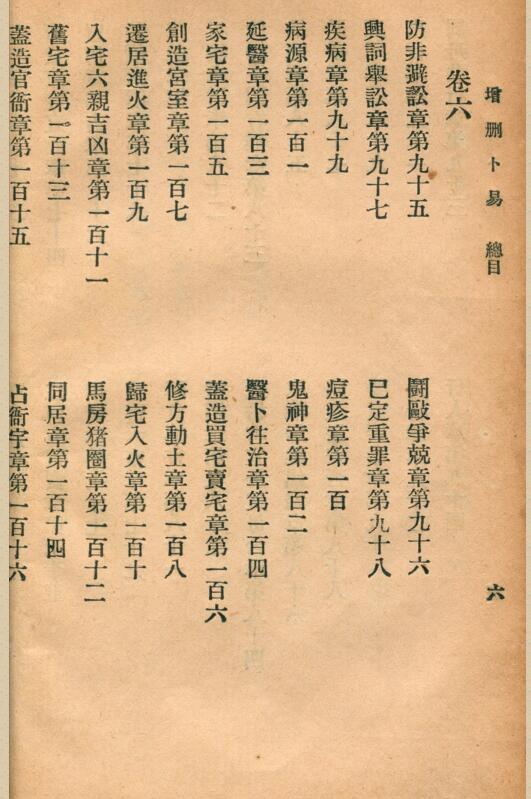 增刪卜易　總目
六
卷六
防非避訟章第九十五
鬭毆爭兢章第九十六
興詞舉訟章第九十七
已定重罪章第九十八
疾病章第九十九
痘疹章第一百
病源章第一百一
鬼神章第一百二
延醫章第一百三
醫卜往治章第一百四
家宅章第一百五
蓋造買宅賣宅章第一百六
創造宮室章第一百七
修方動土章第一百八
遷居進火章第一百九
歸宅入火章第一百十
入宅六親吉凶章第一百十一
馬房猪圈章第一百十二
舊宅章第一百十三
同居章第一百十四
蓋造官衙章第一百十五
占衙宇章第一百十六